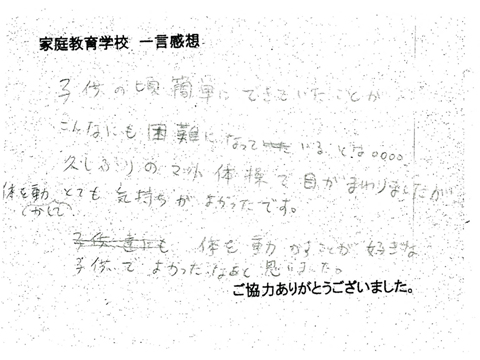 家庭教育学校 一言感想
子供の頃簡単にできていたことが
こんなにも困難になっている とは。。。。
久しぶりのマット体操で目がまわりましたが
体を動かして とても気持ちがよかったです。
子供達にも 体を動かすことが好きな
子供でよかったなぁと思いました。
ご協力ありがとうございました。